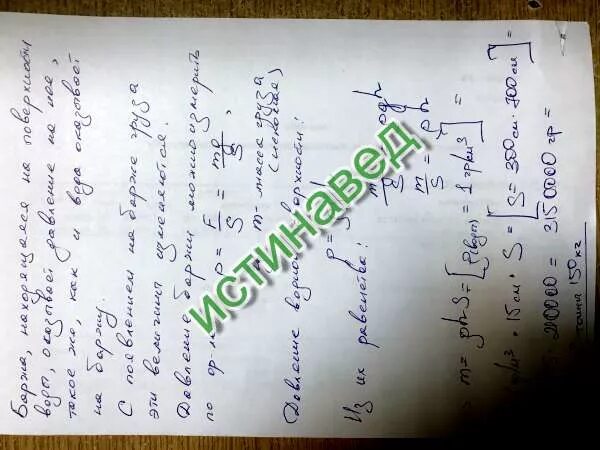 Баржа, находящаяся на поверхности
воды, оказывает давление на нее,
такое же, как и вода оказывает
на баржу.
С появлением на барже груза
эти величины изменяются.
Давление баржи можно измерить
по ф-ле P = F/S = mg/S,
m - масса груза
(искомая)
Давление водной поверхности:
P = g
Из их равенства:
ρgh
m/S = ρh
m = ρhS = [ρ(воды) = 1 гр/см³] =
15 см · S = [S = 350 см · 700 см] =
= 3150000 гр =
тонны 150 кг
ИСТИНАВЕД